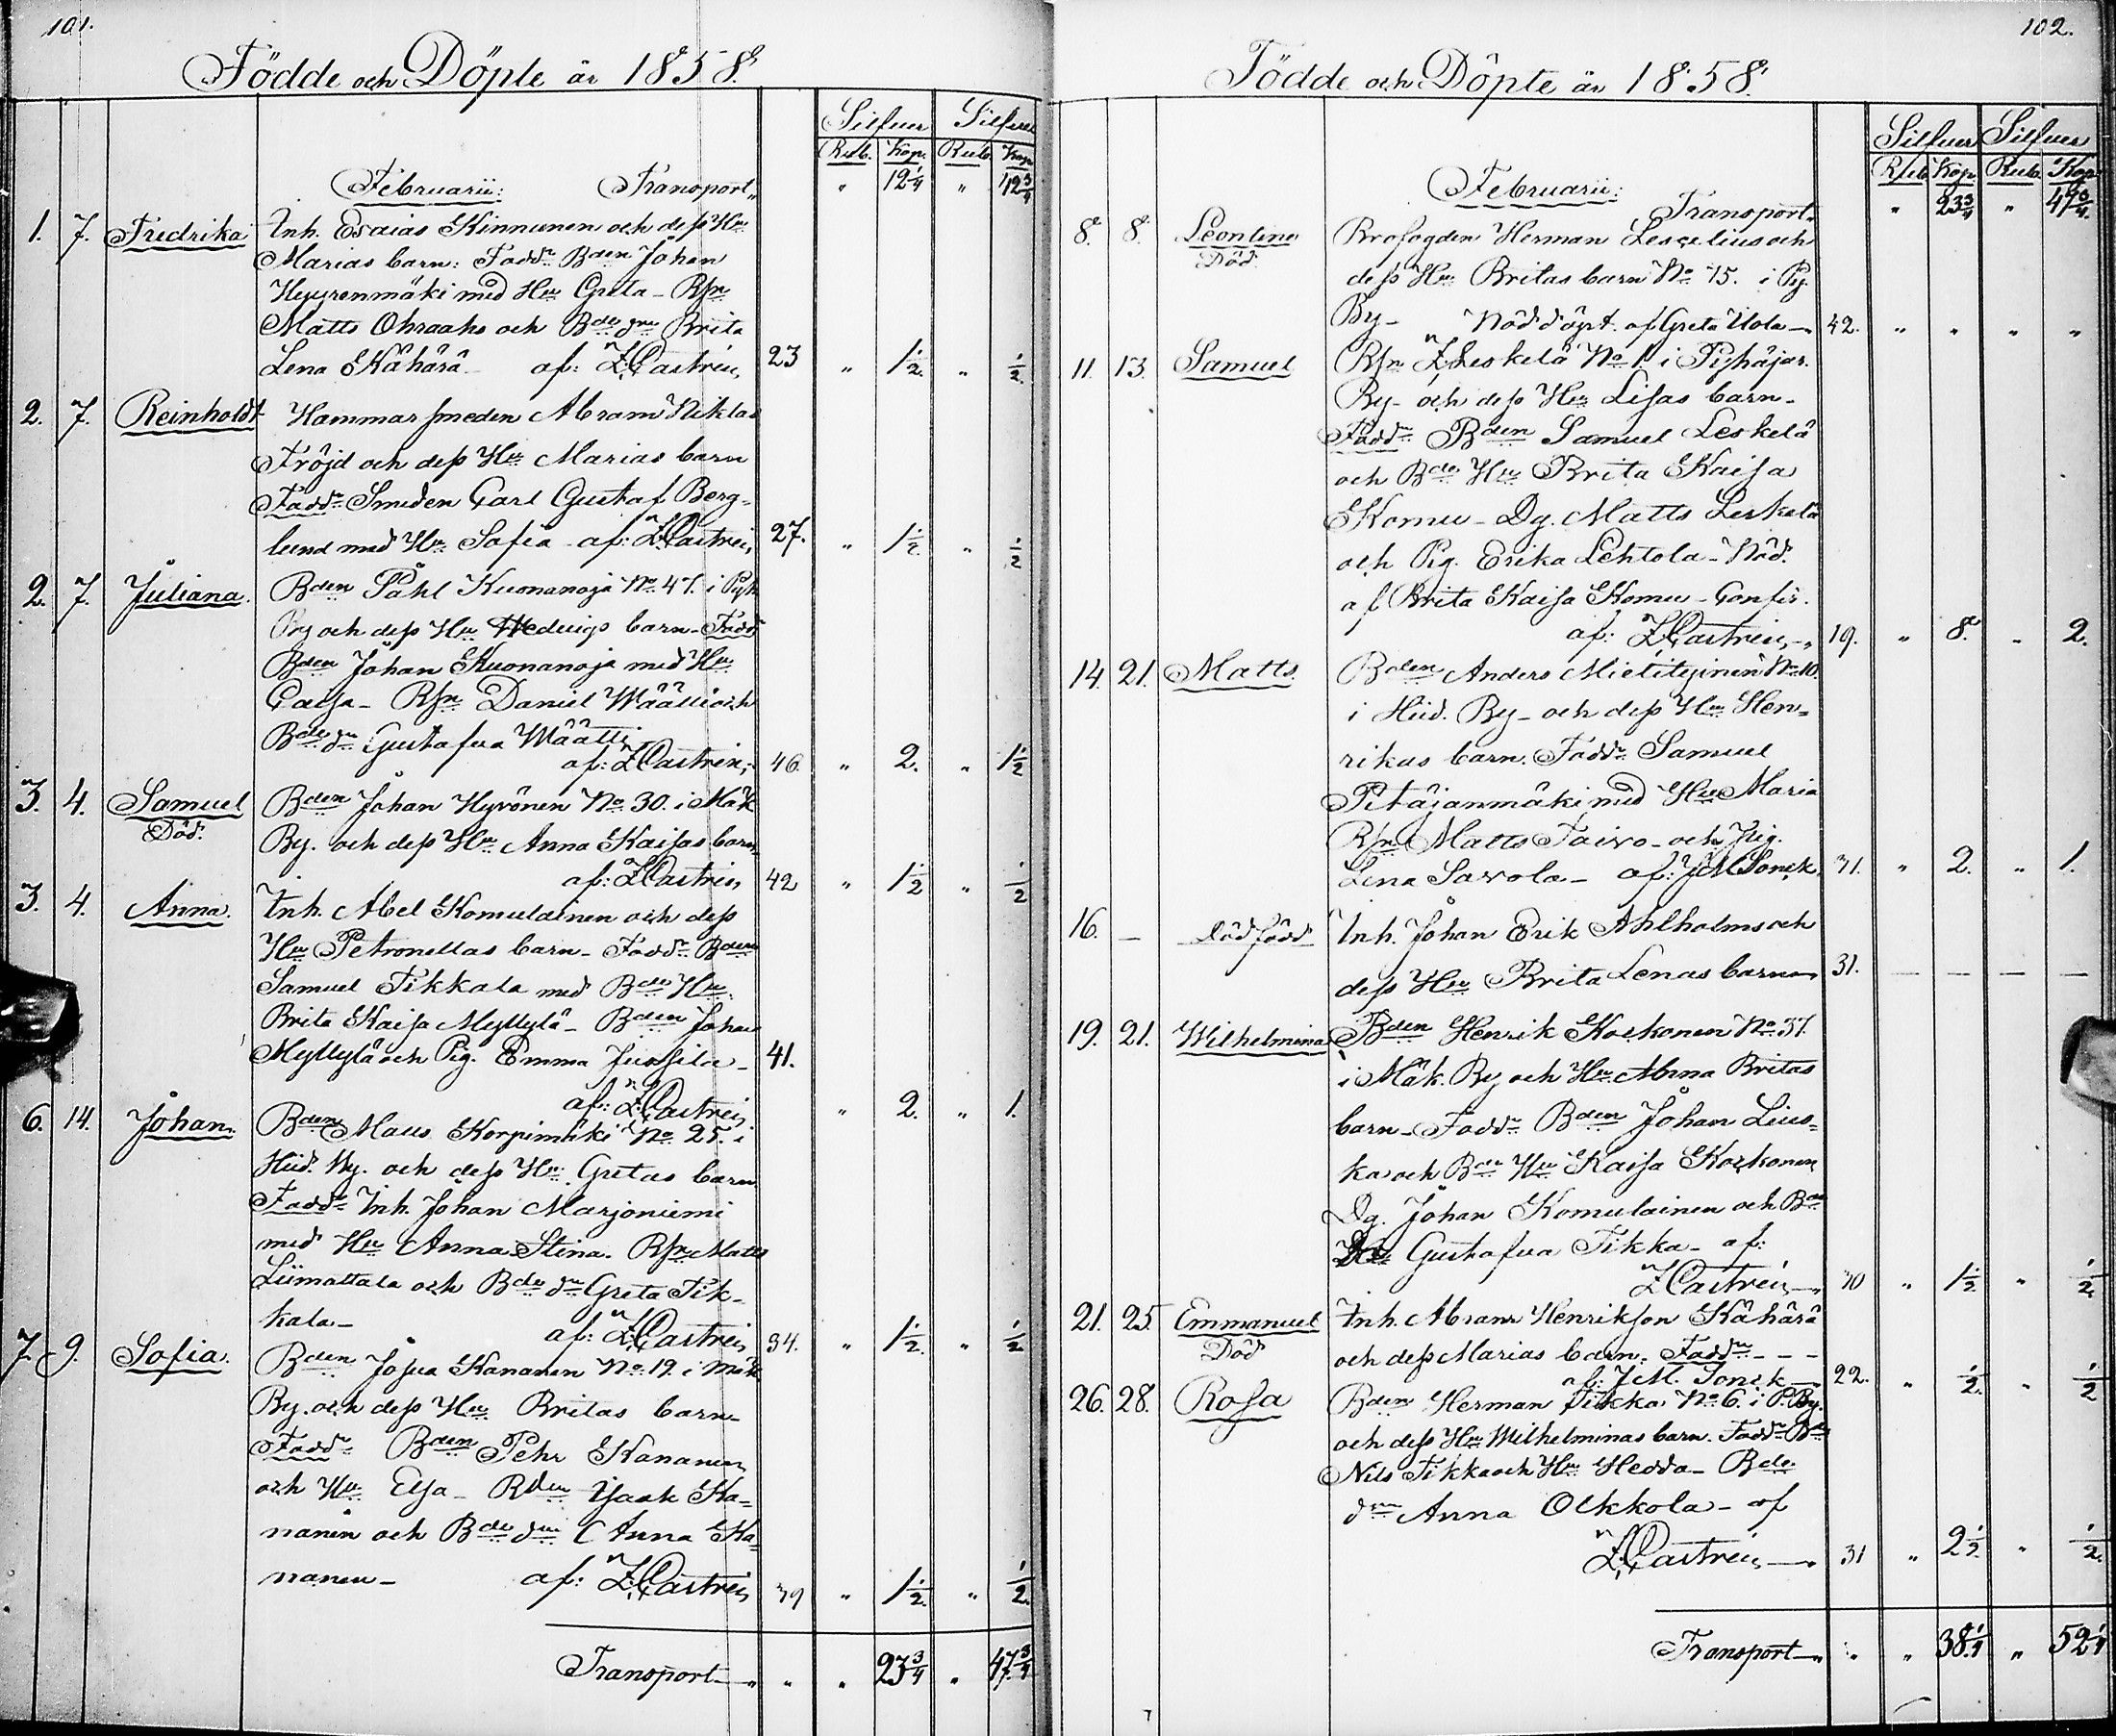 101.
Födde och Döpte år 1858.
Silfver Silfver
Rub. Kop. Rub. Kop.
Februarii: Transport „ 12 1/4 „
1. 7. Fredrika Inh. Esaias Kinnunen och dess Hu
Marias barn: Fadd. Bden Johan
Hyyrenmäki med Hu Greta - Rsn
Matts Ohraaho och Bde dn Brita
Lena Kähärä - af: Z. Castrén, 23 „ 1 1/2. „ 1/2.
2. 7. Reinholdt Hammarsmeden Abram Niklas
Fröjd och dess Hu Marias barn
Fadd. Smeden Carl Gustaf Berg-
lund med Hu Sofia - af: Z. Castrén, 27. „ 1 1/2. „ 1/2
2. 7. Juliana. Bden Påhl Kuonanoja No. 47. i Pyh
By och dess Hu Hedvigs barn - Fadd.
Bden Johan Kuonanoja med Hu
Caisa - Rsn Daniel Määtti och
Bde dn Gustafva Määtti
af: Z Castrén, 46. „ 2. „ 1 1/2
3. 4. Samuel Bden Johan Hyvönen No. 30. i Mäk
Död. By. och dess Hu Anna Kaisas barn
af: Z Castrén, 42 „ 1 1/2 „ 1/2
3. 4. Anna. Inh. Abel Komulainen och dess
Hu Petronellas barn - Fadd. Bden
Samuel Tikkala med Bde Hu
Brita Kaisa Myllylä - Bden Johan
Myllylä och Pig. Emma Jussila - 41.
af: Z. Castrén „ 2. „ 1.
6. 14. Johan. Bden Matts Korpimäki No 25. i
Hiid. By. och dess Hu Gretas barn
Fadd. Inh. Johan Marjoniemi
med Hu Anna Stina. Rsn Matts
Liimattala och Bde dn Greta Tik-
kala - af: Z. Castrén 34. „ 1 1/2. „ 1/2
7. 9. Sofia. Bden Josua Kananen No. 19. i Mäk
By. och dess Hu Britas barn -
Fadd. Bden Pehr Kananen
och Hu Elsa - Bden Isaak Ka-
nanen och Bde dn Anna Ka-
nanen - af: Z. Castrén 39 „ 1 1/2. „ 1/2.
Transport „ „ „ 23 3/4 „ 47 3/4
102.
Födde och Döpte år 1858.
Silfver Silfver
Rub. Kop. Rub. Kop.
Februarii: Transport „ 23 3/4 „ 47 3/4.
8. 8. Leontine Profogden Herman Lescelius och
Död. dess Hu Britas barn No 15. i Py.
By - Nöddöpt af Greta Uola - 42. „ „ „ „
11. 13. Samuel Rsn Z. Leskelä No 1. i Pyhäjär.
By - och dess Hu Lisas barn -
Fadd. Bden Samuel Leskelä
och Bde Hu Brita Kaisa
Komu - Dg. Matts Leskelä
och Pig. Erika Lehtola - Nöd.
af Brita Kaisa Komu - Confir.
af: Z. Castrén, - 19. „ 8. „ 2.
14. 21. Matts Bden Anders Mietityinen No 10.
i Hiid. By - och dess Hu Hen-
rikas barn. Fadd. Samuel
Pitäjänmäki med Hu Maria
Rsn Matts Taivo - och Pig.
Lena Savola - af: J M Sonck, 31. „ 2. „ 1.
16. - Död född Inh. Johan Erik Ahlholms och
dess Hu Brita Lenas barn 31. - - - -
19. 21. Wilhelmina Bden Henrik Korkonen No. 37.
i Mäk. By och Hu Anna Britas
barn - Fadd. Bden Johan Lius-
ka och Bde Hu Kaisa Korkonen
Dg. Johan Komulainen och Bde
Hu Gustafva Tikka - af:
Z Castrén - 30 „ 1 1/2 „ 1/2.
21. 25 Emmanuel Inh. Abram Henrikson Kähärä
Död och dess Marias barn. Fadd. - - -
af: J M. Sonck - 22. „ 1/2. „ 1/2
26. 28. Rosa Bden Herman Tikka No 6. i P. By.
och dess Hu Wilhelminas barn. Fadd. Bde
Nils Tikka och Hu Hedda - Bde
dn Anna Olkkola - af
Z. Castrén - 31 „ 2 1/2. „ 1/2.
Transport „ „ 38 1/4 „ 52 1/4